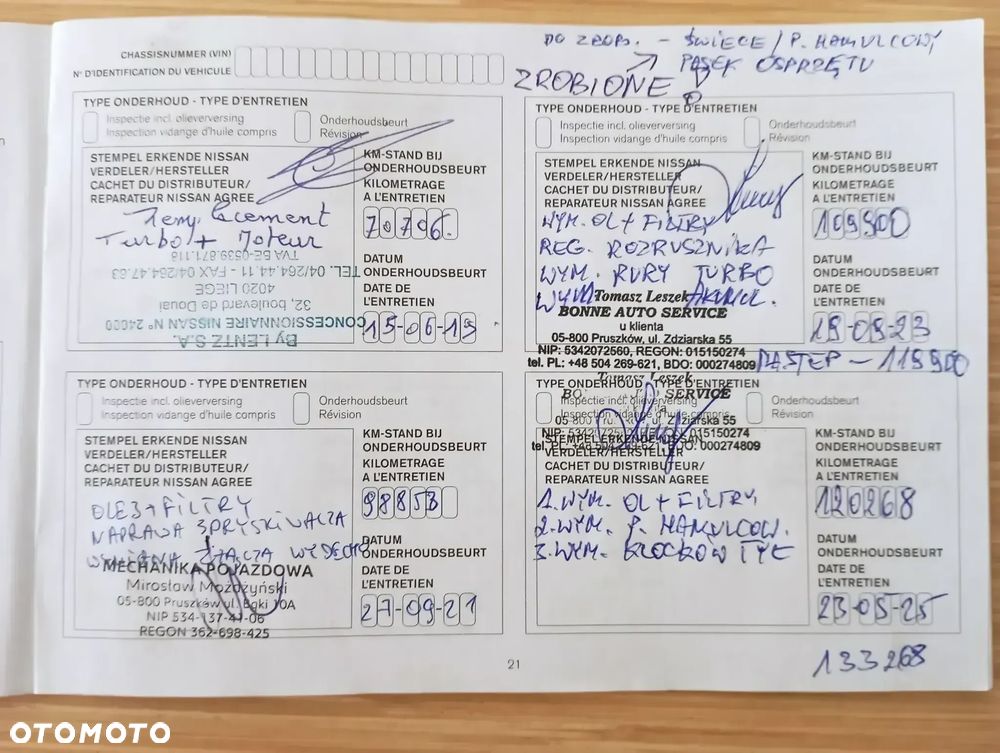 CHASSISNUMMER (VIN)
N° D'IDENTIFICATION DU VEHICULE
DO ZROB. - ŚWIECE / P. HAMULCOWY
PASEK OSPRZĘTU
ZROBIONE
TYPE ONDERHOUD - TYPE D'ENTRETIEN
Inspectie incl. olieverversing
Inspection vidange d'huile compris
Onderhoudsbeurt
Révision
STEMPEL ERKENDE NISSAN
VERDELER/HERSTELLER
CACHET DU DISTRIBUTEUR/
REPARATEUR NISSAN AGREE
KM-STAND BIJ
ONDERHOUDSBEURT
KILOMETRAGE
A L'ENTRETIEN
70706.
Remplacement
Turbo + Moteur
DATUM
ONDERHOUDSBEURT
DATE DE
L'ENTRETIEN
15-06-19
By LENTZ S.A.
CONCESSIONNAIRE NISSAN N° 24000
32, boulevard de Douai
4020 LIEGE
TEL. 04/264.44.11 - FAX 04/264.47.63
TVA BE-0539.871.118
TYPE ONDERHOUD - TYPE D'ENTRETIEN
Inspectie incl. olieverversing
Inspection vidange d'huile compris
Onderhoudsbeurt
Révision
STEMPEL ERKENDE NISSAN
VERDELER/HERSTELLER
CACHET DU DISTRIBUTEUR/
REPARATEUR NISSAN AGREE
KM-STAND BIJ
ONDERHOUDSBEURT
KILOMETRAGE
A L'ENTRETIEN
109900
WYM. OL + FILTRY
REG. ROZRUSZNIKA
WYM. RURY TURBO
WYM. AKUMUL.
DATUM
ONDERHOUDSBEURT
DATE DE
L'ENTRETIEN
19-09-23
Tomasz Leszek
BONNE AUTO SERVICE
u klienta
05-800 Pruszków, ul. Zdziarska 55
NIP: 5342072560, REGON: 015150274
tel. PL: +48 504 269-621, BDO: 000274809
NASTĘP - 119900
TYPE ONDERHOUD - TYPE D'ENTRETIEN
Inspectie incl. olieverversing
Inspection vidange d'huile compris
Onderhoudsbeurt
Révision
STEMPEL ERKENDE NISSAN
VERDELER/HERSTELLER
CACHET DU DISTRIBUTEUR/
REPARATEUR NISSAN AGREE
KM-STAND BIJ
ONDERHOUDSBEURT
KILOMETRAGE
A L'ENTRETIEN
98853
OLEJ + FILTRY
NAPRAWA SPRYSKIWACZA
WYMIANA ZŁĄCZA WYDECHU
DATUM
ONDERHOUDSBEURT
DATE DE
L'ENTRETIEN
27-09-21
MECHANIKA POJAZDOWA
Mirosław Możdżyński
05-800 Pruszków ul. Bąki 10A
NIP 534-137-47-06
REGON 362-698-425
Tomasz Leszek
SERVICE
TYPE ONDERHOUD - TYPE D'ENTRETIEN
Inspectie incl. olieverversing
Inspection vidange d'huile compris
Onderhoudsbeurt
Révision
05-800 ul. Zdziarska 55
015150274
tel. PL: +48 504 269-621, BDO: 000274809
STEMPEL ERKENDE NISSAN
VERDELER/HERSTELLER
CACHET DU DISTRIBUTEUR/
REPARATEUR NISSAN AGREE
KM-STAND BIJ
ONDERHOUDSBEURT
KILOMETRAGE
A L'ENTRETIEN
120268
1. WYM. OL + FILTRY
2. WYM. P. HAMULCOW.
3. WYM. KLOCKÓW TYŁ
DATUM
ONDERHOUDSBEURT
DATE DE
L'ENTRETIEN
23-05-25
133268
21
OTOMOTO